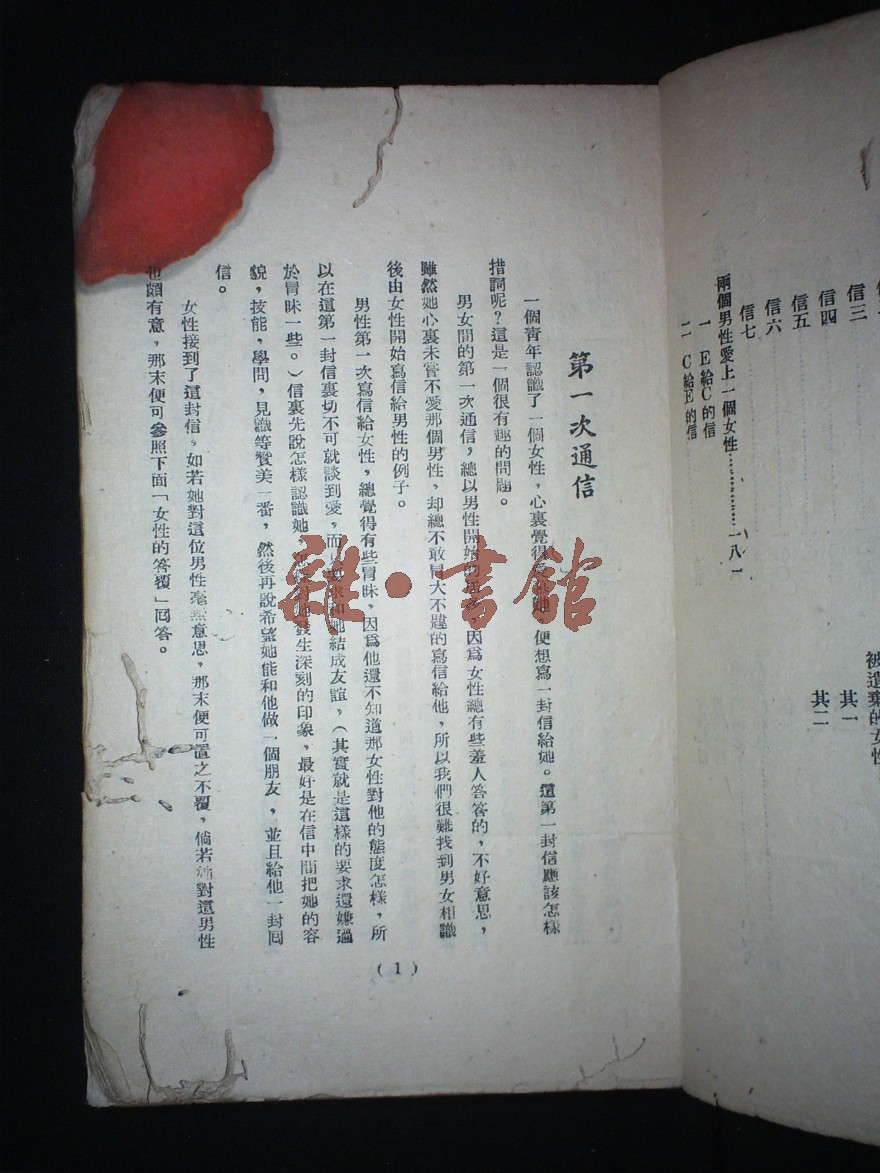 信三
信四
信五
信六
信七
兩個男性愛上一個女性……………一八一
一 E給C的信
二 C給E的信
被遺棄的女性
其一
其二
第一次通信
一個青年認識了一個女性，心裏覺得愛她，便想寫一封信給她。這第一封信應該怎樣
措詞呢？這是一個很有趣的問題。
男女間的第一次通信，總以男性開始的居多，因爲女性總有些羞人答答的，不好意思，
雖然她心裏未嘗不愛那個男性，却總不敢冒大不韙的寫信給他，所以我們很難找到男女相識
後由女性開始寫信給男性的例子。
男性第一次寫信給女性，總覺得有些冒昧，因爲他還不知道那女性對他的態度怎樣，所
以在這第一封信裏切不可就談到愛，而只要求和她結成友誼，（其實就是這樣的要求還嫌過
於冒昧一些。）信裏先說怎樣認識她，怎樣對她發生深刻的印象，最好是在信中間把她的容
貌，技能，學問，見識等贊美一番，然後再說希望她能和他做一個朋友，並且給他一封囘
信。
女性接到了這封信，如若她對這位男性毫無意思，那末便可置之不覆，倘若她對這男性
也頗有意，那末便可參照下面「女性的答覆」囘答。
(1)
雜·書館